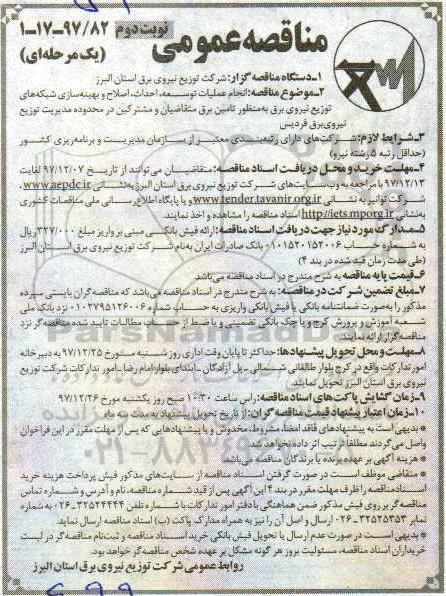 مناقصه عمومی
نوبت دوم
۱-۱۷-۹۷/۸۲
(یک مرحله‌ای)
۱-دستگاه مناقصه گزار: شرکت توزیع نیروی برق استان البرز
۲-موضوع مناقصه: انجام عملیات توسعه، احداث، اصلاح و بهینه‌سازی شبکه‌های
توزیع نیروی برق به‌منظور تامین برق متقاضیان و مشترکین در محدوده مدیریت توزیع
نیروی برق فردیس
۳-شرایط لازم: شرکت‌های دارای رتبه‌بندی معتبر از سازمان مدیریت و برنامه‌ریزی کشور
(حداقل رتبه ۵ رشته نیرو)
۴-مهلت خرید و محل دریافت اسناد مناقصه: متقاضیان می‌توانند از تاریخ ۹۷/۱۲/۰۷ لغایت
۹۷/۱۲/۱۳ با مراجعه به وب سایت‌های شرکت توزیع نیروی برق استان البرز به‌نشانی www.aepdc.ir،
شرکت توانیر به‌نشانی www.tender.tavanir.org.ir و یا پایگاه اطلاع‌رسانی ملی مناقصات کشوری
به‌نشانی http://iets.mporg.ir اسناد مناقصه را مشاهده و اخذ نمایند.
۵-مدارک مورد نیاز جهت دریافت اسناد مناقصه: ارائه فیش بانکی مبنی بر واریز مبلغ ۳۲۷/۰۰۰ ریال
به شماره حساب ۰۱۰۱۵۲۰۱۵۲۰۰۶ بانک صادرات ایران به‌نام شرکت توزیع نیروی برق استان البرز
(طی مدت زمان قید شده در بند ۴)
۶-قیمت پایه مناقصه به شرح مندرج در اسناد مناقصه می‌باشد.
۷-مبلغ تضمین شرکت در مناقصه: به شرح مندرج در اسناد مناقصه می‌باشد که مناقصه‌گران بایستی سپرده
مذکور را به‌صورت ضمانتنامه بانکی یا فیش بانکی واریزی به حساب شماره ۰۱۰۳۷۹۵۱۲۶۰۰۶ نزد بانک ملی
شعبه آموزش و پرورش کرج و یا چک بانکی تضمینی و یا ضبط از حساب مطالبات تایید شده مناقصه‌گر نزد
مناقصه‌گزار ارائه نمایند.
۸-مهلت و محل تحویل پیشنهادها: حداکثر تا پایان وقت اداری روز شنبه مورخ ۹۷/۱۲/۲۵ به دبیرخانه
امور تدارکات واقع در کرج بلوار طالقانی شمالی-پل آزادگان-ابتدای بلوار امام رضا-امور تدارکات شرکت توزیع
نیروی برق استان البرز تحویل نمایند.
۹-زمان گشایش پاکت‌های اسناد مناقصه: راس ساعت ۱۰:۳۰ صبح روز یکشنبه مورخ ۹۷/۱۲/۲۶
۱۰-زمان اعتبار پیشنهاد قیمت مناقصه گران: از تاریخ تحویل پیشنهاد به مدت سه ماه
* بدیهی است به پیشنهادهای فاقد امضا، مشروط، مخدوش و یا پیشنهادهایی که پس از مهلت مقرر در این فراخوان
واصل می‌گردند مطلقا ترتیب اثر داده نخواهد شد.
* هزینه آگهی بر عهده برنده یا برندگان مناقصه می‌باشد.
* متقاضی موظف است در صورت گرفتن اسناد مناقصه از سایت‌های مذکور فیش پرداخت هزینه خرید
اسناد مناقصه را ظرف مهلت مقرر در بند ۴ این آگهی پس از قید شماره مناقصه، نام و آدرس و شماره تماس
مناقصه‌گر بر روی فیش مذکور ضمن هماهنگی با دفتر امور تدارکات با شماره تلفن ۳۲۵۲۴۴۴۴-۰۲۶ به شماره
نمابر ۳۲۵۲۵۳۵۳-۰۲۶ ارسال و اصل آن را نیز به همراه مدارک پاکت (ب) اسناد مناقصه ارسال نماید.
* بدیهی است در صورت عدم ارسال یا تحویل فیش بانکی خرید اسناد مناقصه و ثبت‌نام مناقصه‌گر در لیست
خریداران اسناد مناقصه، مسئولیت بروز هر گونه مشکل بر عهده شخص مناقصه‌گر خواهد بود.
روابط عمومی شرکت توزیع نیروی برق استان البرز